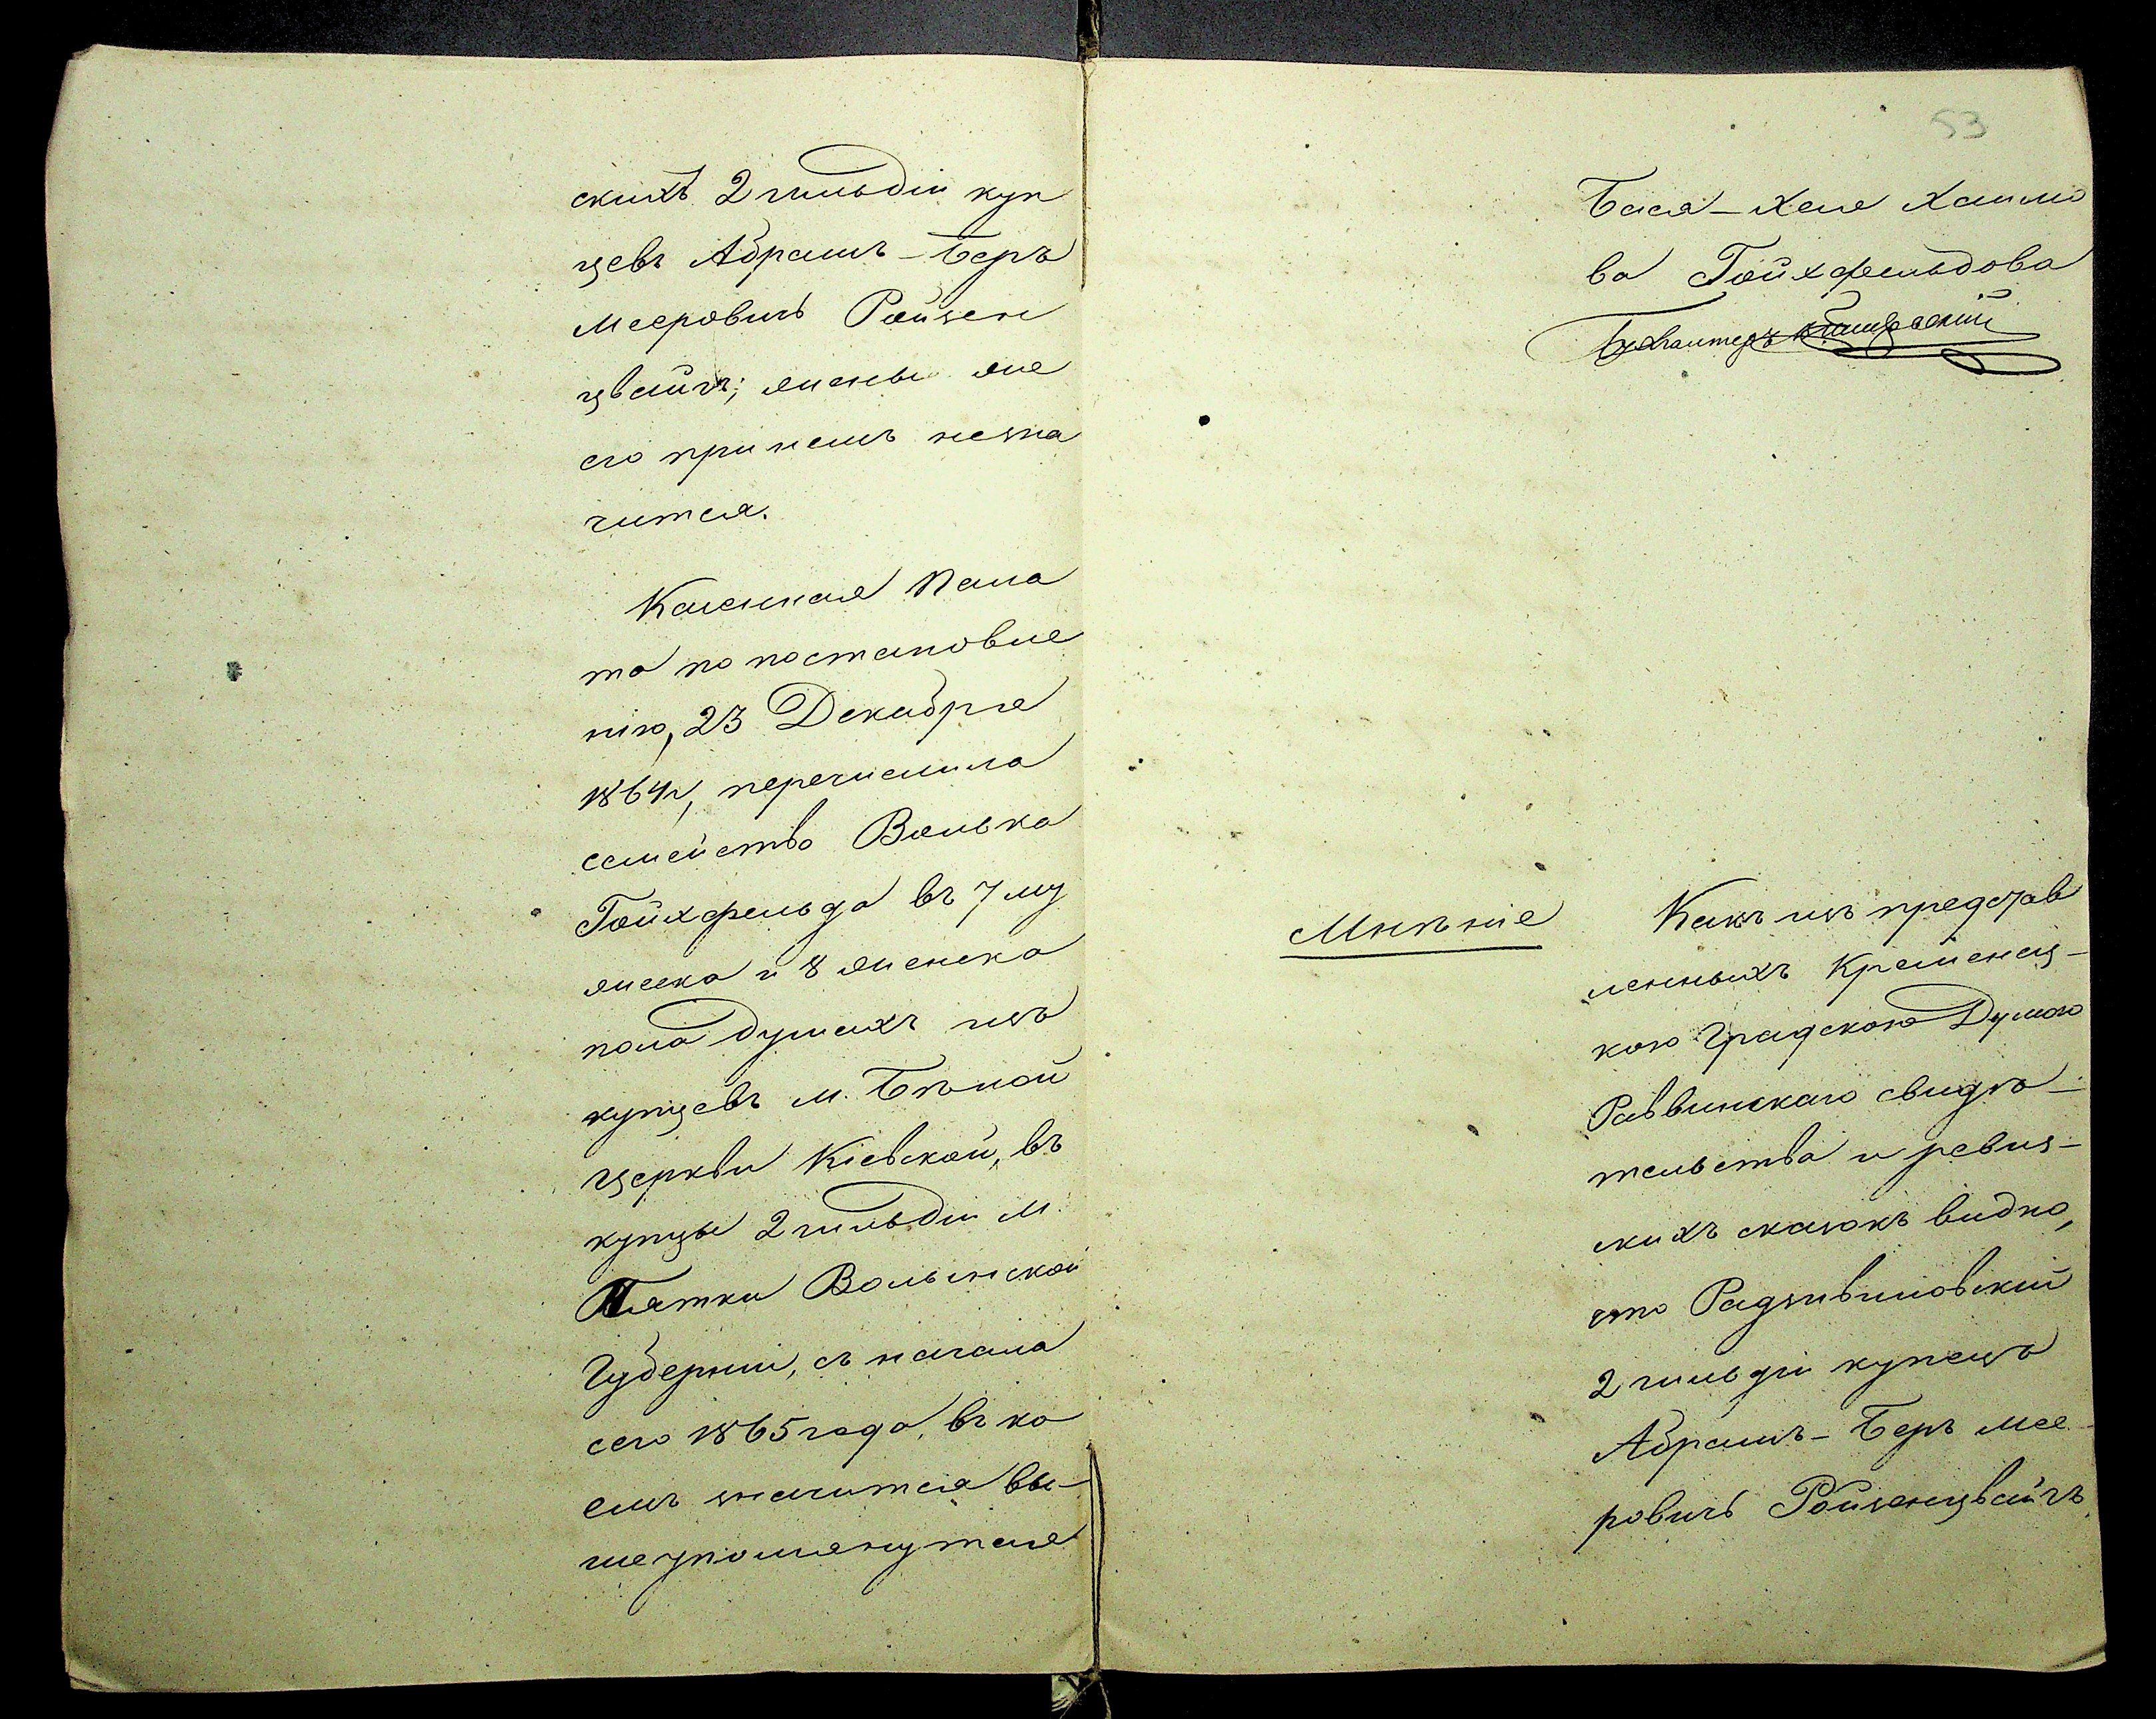 скихъ 2 гильдіи куп
цевъ Абрамъ-Беръ
Мееровичъ Ройзен
цвайгъ; жены же
его при немъ незна
чится.
Казенная Пала
та по постановле
нію, 23 Декабря
1864 г, перечислила
семейство Волька
Гойхфельда въ 7 му
жеска и 8 женска
пола душахъ изъ
купцевъ м. Бѣлой
церкви Кіевской, въ
купцы 2 гильдіи м.
Пятки Волынской
Губерніи, съ начала
сего 1865 года, въ ко
емъ значится вы-
шеупомянутая
53
Бася-Хая Хаимо
ва Гойхфельдова
Бухгалтеръ
Мнѣніе
Какъ изъ представ
ленныхъ Кременец-
кою Градскою Думою
Раввинскаго свидѣ-
тельства и ревиз-
скихъ сказокъ видно,
что Радзивиловскій
2 гильдіи купецъ
Абрамъ-Беръ Мее-
ровичъ Ройзенцвайгъ